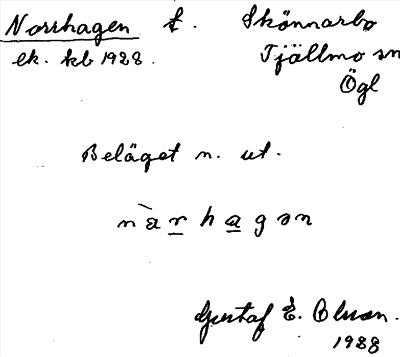 Norrhagen f. Skönnarbo
ek. kb 1928. Tjällmo sn
Ögl
Beläget n. ut.
nàrhagən
Gustaf E. Olsson.
1928